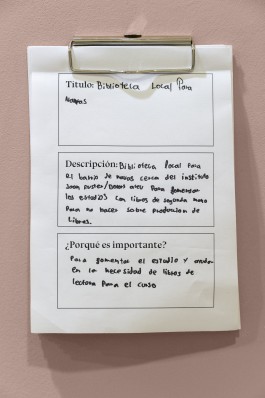 Título: Biblioteca Local Para
navas
Descripción: Biblioteca local para
el barrio de navas cerca del instituto
Joan
para fomentar
los estudios con libros de segunda mano
Para no hacer sobre produccion de
libros.
¿Porqué es importante?
Para fomentar el estudio y
en la necesidad de libros de
lectora Para el curso